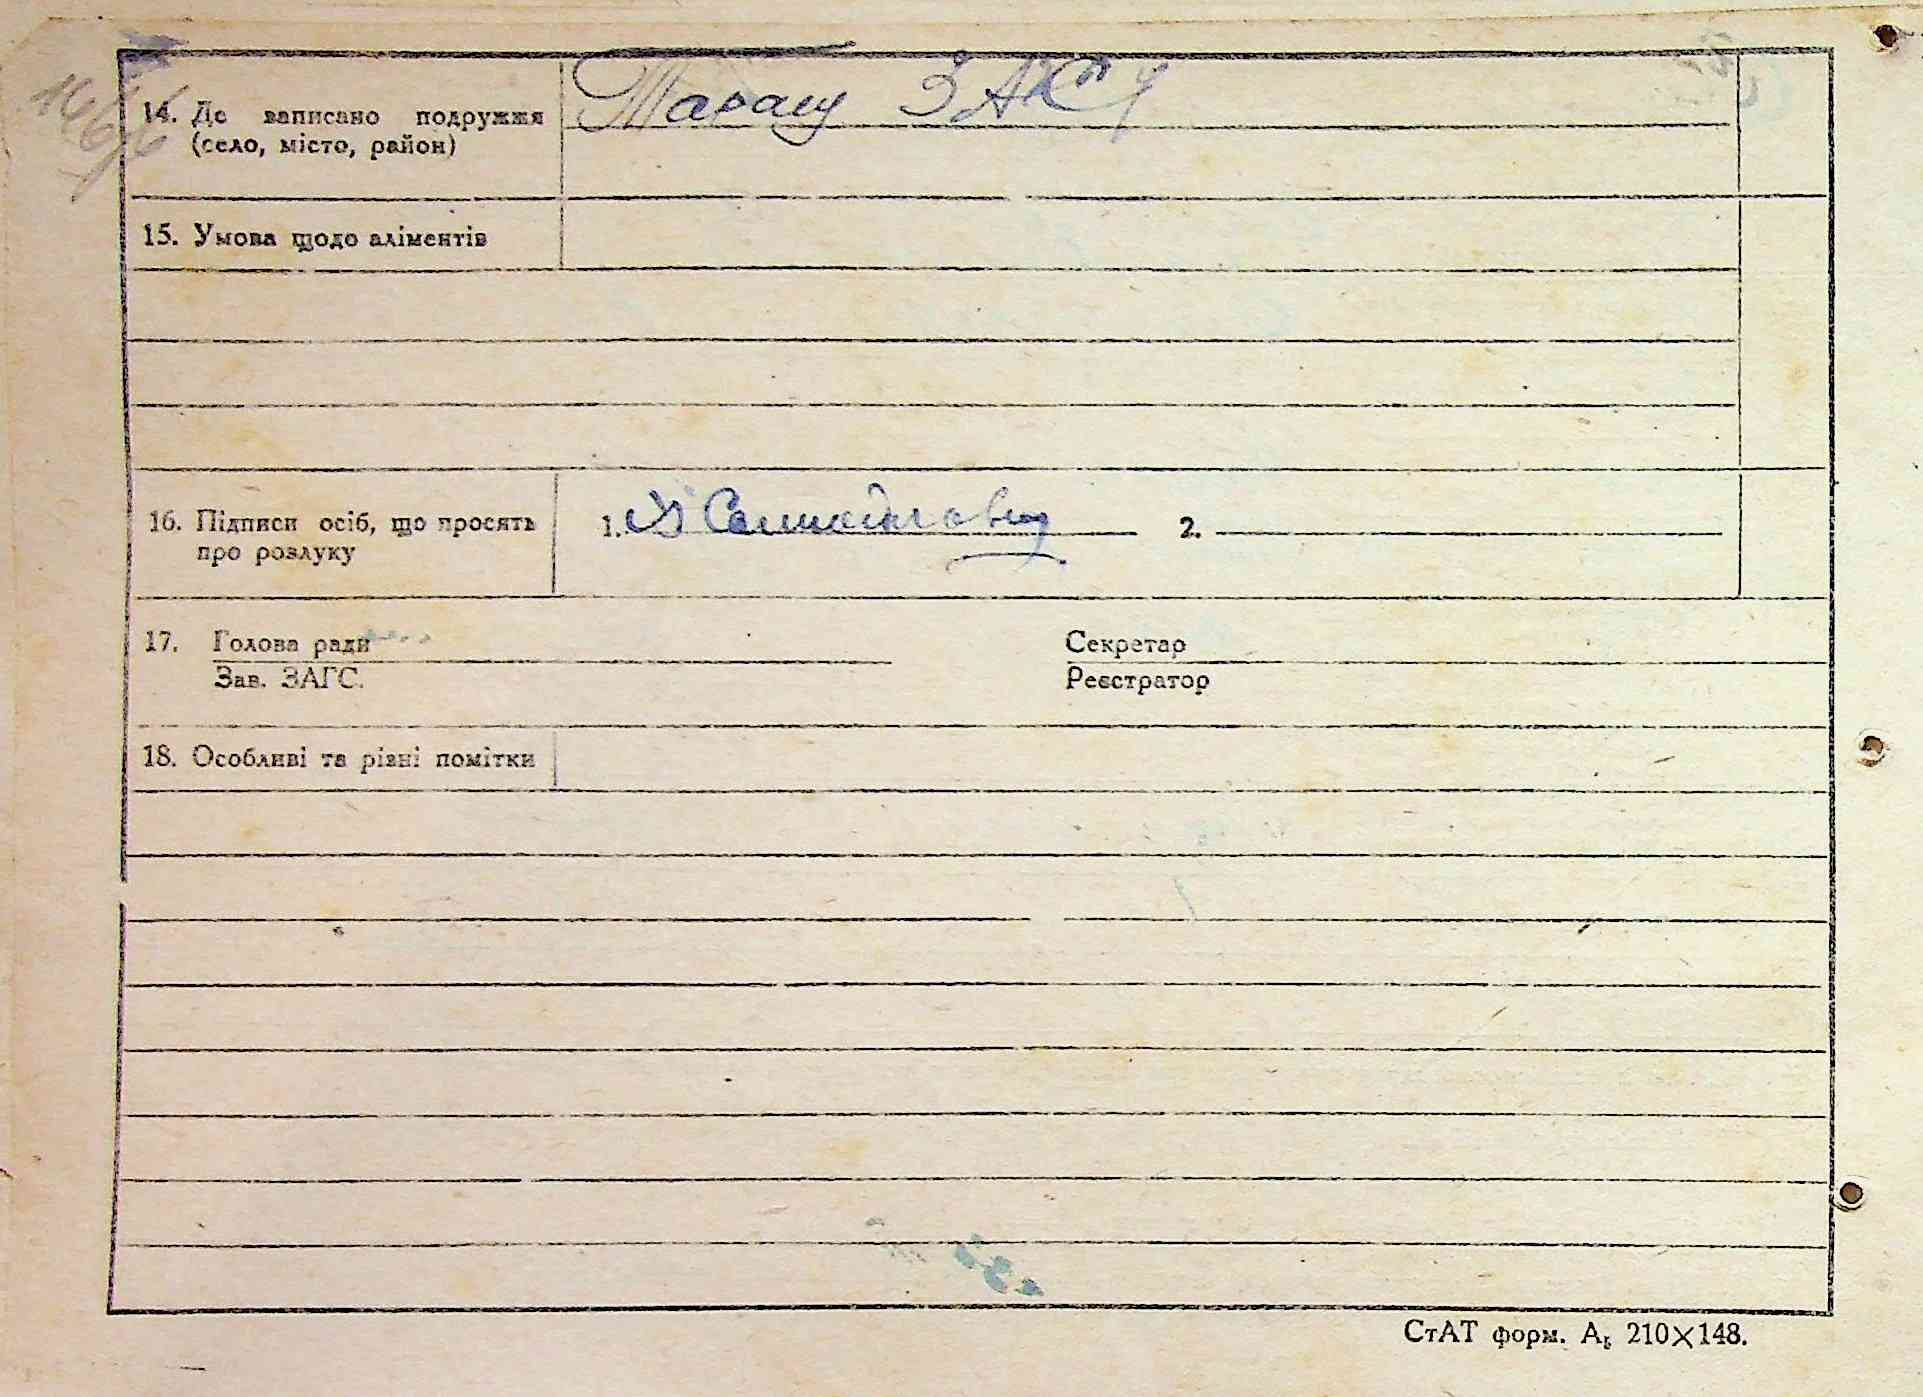 14. Де записано подружжя
(село, місто, район)
ЗАГСу
15. Умова щодо аліментів
16. Підписи осіб, що просять
про розлуку
1. 2.
17. Голова ради Секретар
Зав. ЗАГС. Реєстратор
18. Особливі та різні помітки
СтАТ форм. А₅ 210×148.